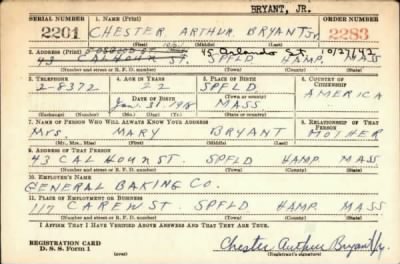 BRYANT, JR.
SERIAL NUMBER 1. NAME (Print) ORDER NUMBER
2201 CHESTER ARTHUR BRYANT Jr. 2283
(First) (Middle) (Last)
2. ADDRESS (Print) 45 Orlando St. 10/27/42
43 CALHOUN ST. SPFLD HAMP. MASS
(Number and street or R. F. D. number) (Town) (County) (State)
3. TELEPHONE 4. AGE IN YEARS 5. PLACE OF BIRTH 6. COUNTRY OF CITIZENSHIP
2-8372 22 SPFLD. AMERICA
DATE OF BIRTH (Town or county)
Jan. 31, 1918 MASS
(Exchange) (Number) (Mo.) (Day) (Yr.) (State or country)
7. NAME OF PERSON WHO WILL ALWAYS KNOW YOUR ADDRESS 8. RELATIONSHIP OF THAT PERSON
Mrs. MARY BRYANT MOTHER
(Mr., Mrs., Miss) (First) (Middle) (Last)
9. ADDRESS OF THAT PERSON
43 CALHOUN ST. SPFLD HAMP. MASS
(Number and street or R. F. D. number) (Town) (County) (State)
10. EMPLOYER'S NAME
GENERAL BAKING CO.
11. PLACE OF EMPLOYMENT OR BUSINESS
117 CAREW ST. SPFLD HAMP. MASS
(Number and street or R. F. D. number) (Town) (County) (State)
I AFFIRM THAT I HAVE VERIFIED ABOVE ANSWERS AND THAT THEY ARE TRUE.
REGISTRATION CARD
D. S. S. Form 1 Chester Arthur Bryant Jr.
(Registrant's signature)